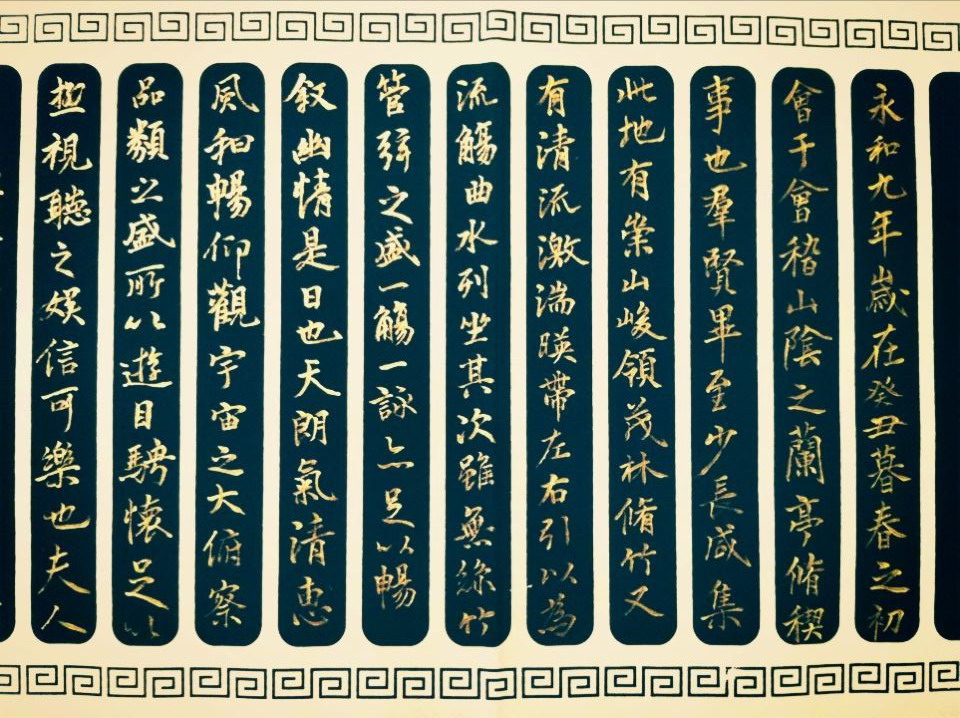 永和九年歲在癸丑暮春之初
會于會稽山陰之蘭亭脩稧
事也羣賢畢至少長咸集
此地有崇山峻領茂林脩竹又
有清流激湍暎帶左右引以為
流觴曲水列坐其次雖無絲竹
管弦之盛一觴一詠亦足以暢
敘幽情是日也天朗氣清惠
風和暢仰觀宇宙之大俯察
品類之盛所以遊目騁懷足以
極視聽之娛信可樂也夫人